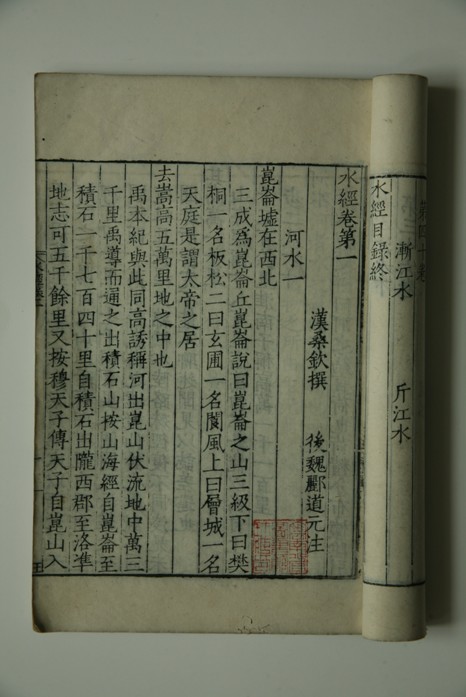 漸江水 斤江水
水經目録終
水經卷第一
漢桑欽撰 後魏酈道元注
河水一
崑崙墟在西北
三成爲崑崙丘崑崙說曰崑崙之山三級下曰樊
桐一名板松二曰玄圃一名閬風上曰層城一名
天庭是謂太帝之居
去嵩高五萬里地之中也
禹本紀與此同高誘稱河出崑山伏流地中萬三
千里禹導而通之出積石山按山海經自崑崙至
積石一千七百四十里自積石出隴西郡至洛凖
地志可五千餘里又按穆天子傳天子自崑山入